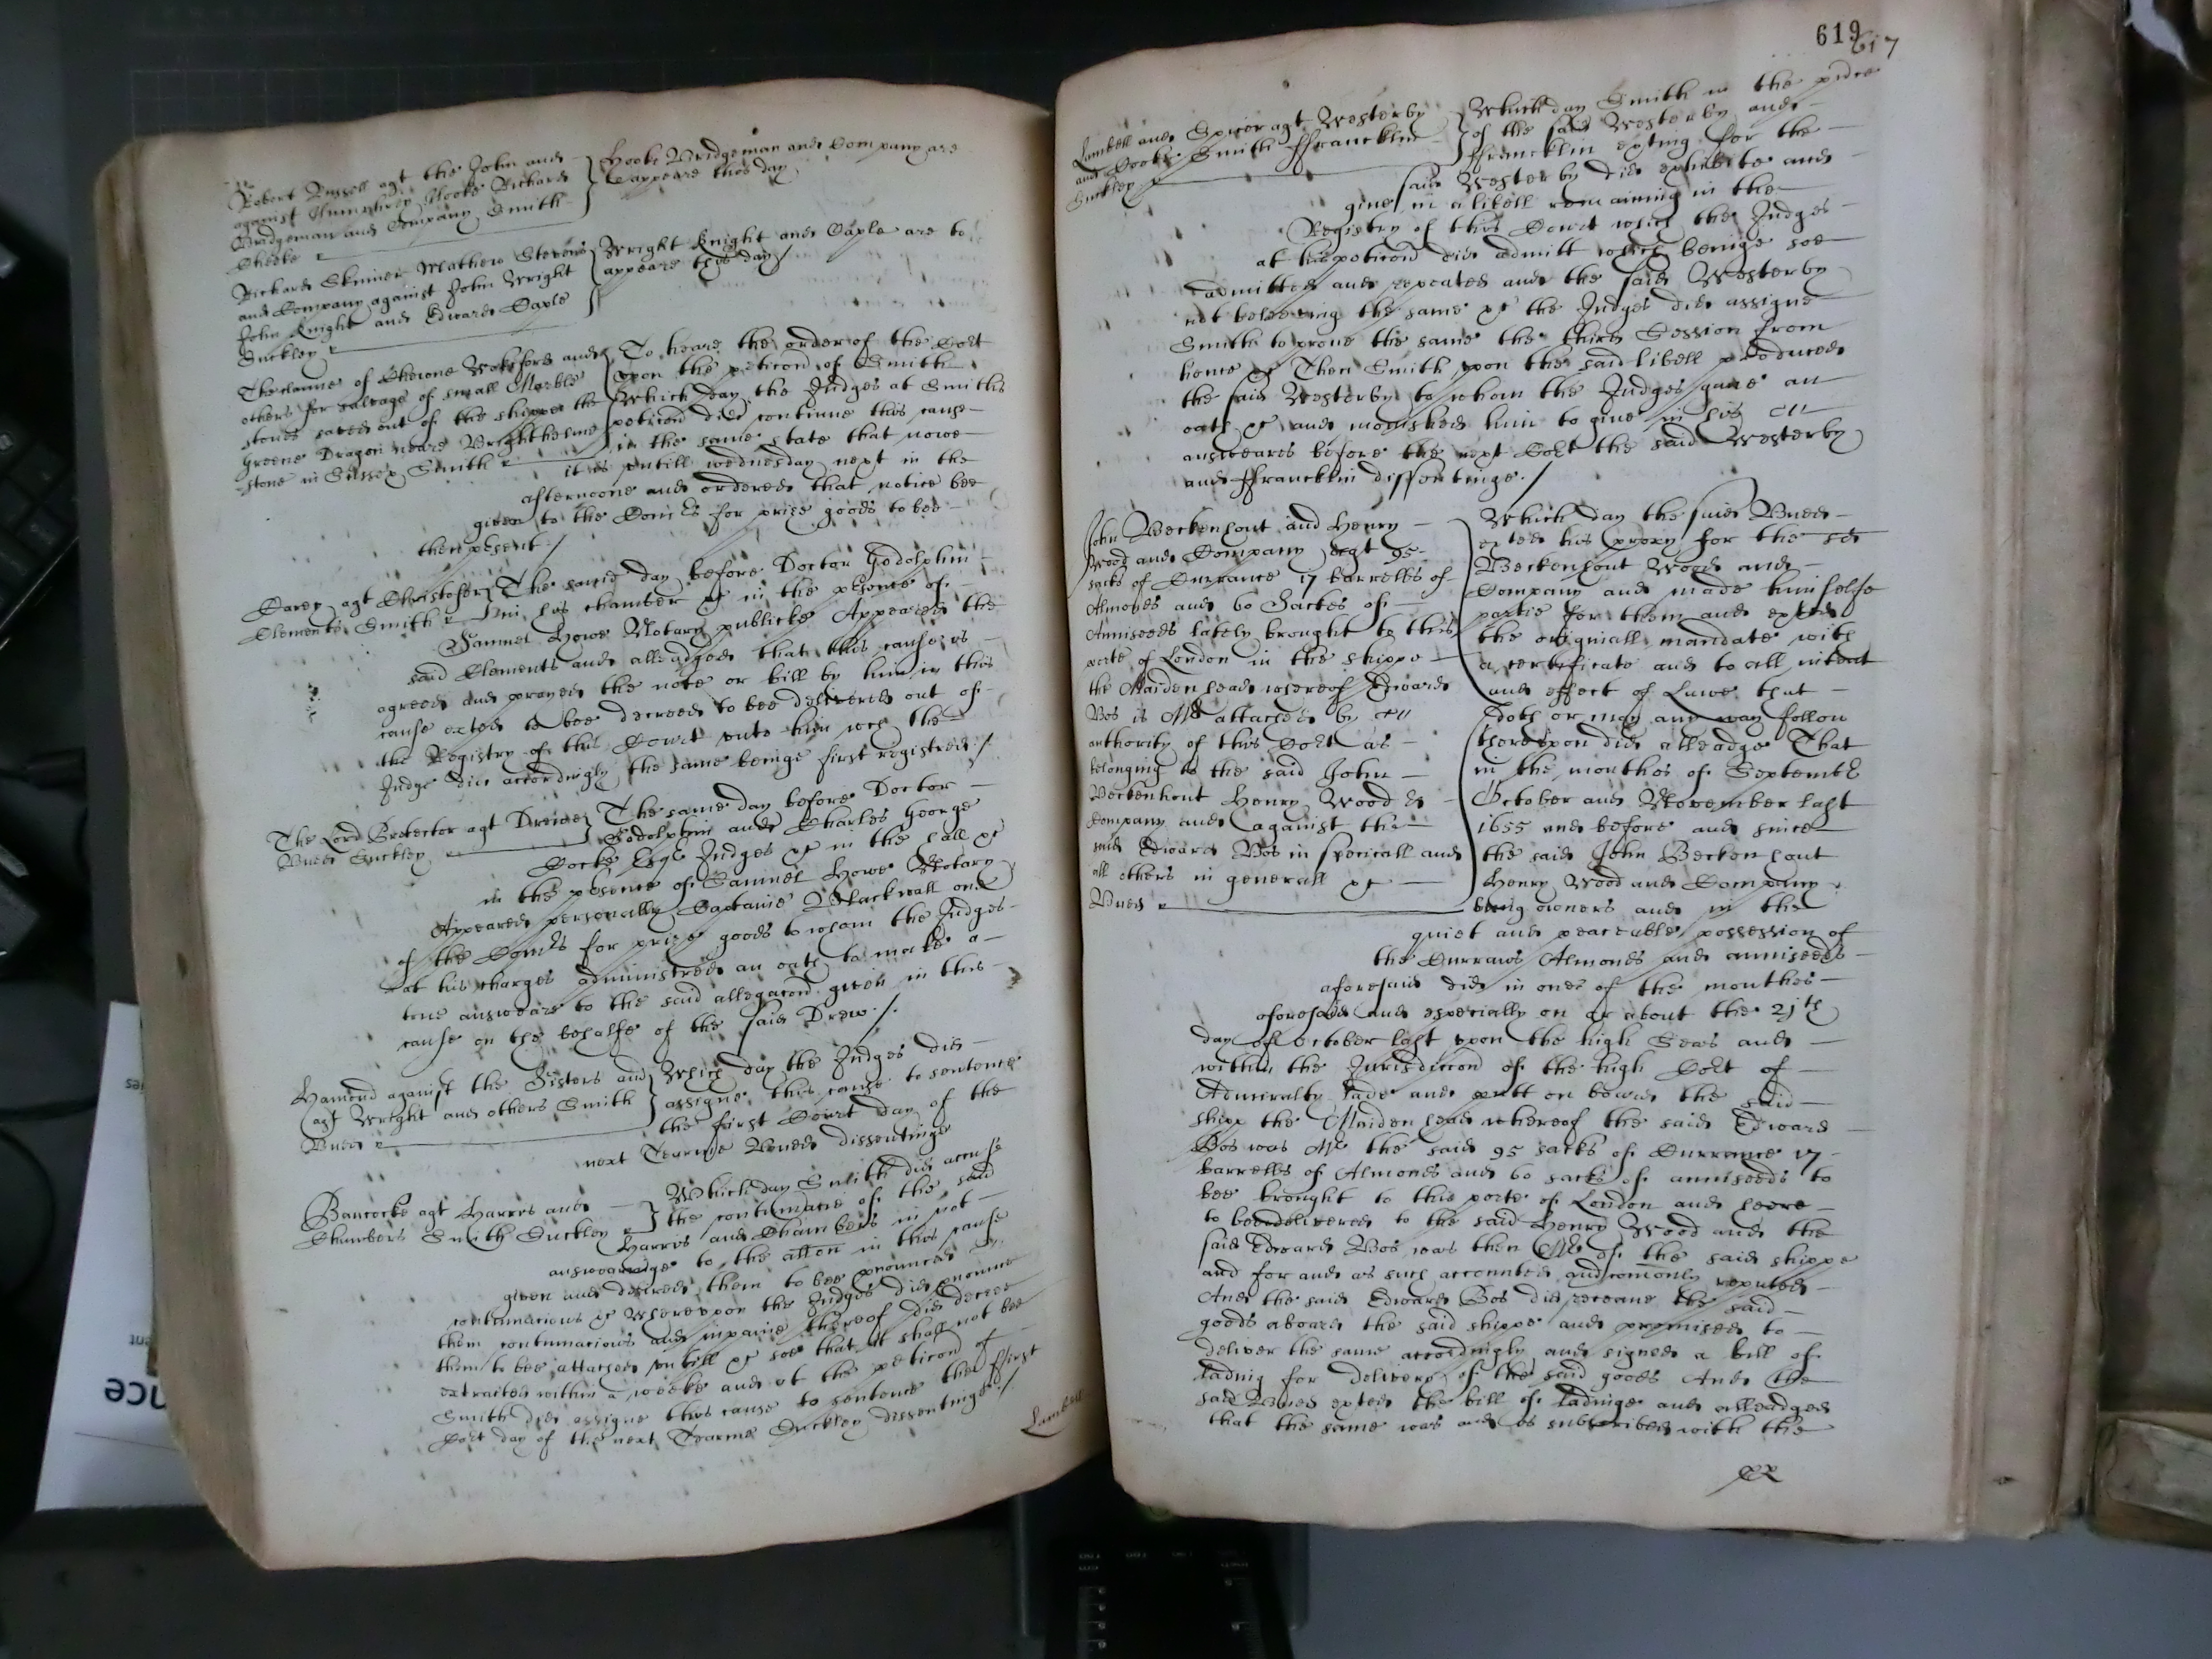 Robert Russell agt the John and
against Humphrey Hooke Richard
Bridgeman and Company Smith
Cheeke
Hooke Bridgeman and Company are
to appeare this day
Richard Skinner Mathew Stevens
and Company against John Wright
John Knight and Edward Caple
Suckley
Wright Knight and Caple are to
appeare this day /
The clayme of Wakeford and
others for salvage of small Marble
stones saved out of the shippe the
Greene Dragon neare Brighthelme
stone in Sussex Smith
To heare the order of the Cort
upon the peticon of Smith
Which day the Judges at Smiths
peticon did continue this cause
in the same state that nowe
it is untill wednesday next in the
afternoone and ordered that notice bee
given to the Comrs for prize goods to bee
then present /
Darey agt Christofer
Clements Smith
The same day before Doctor Godolphin
in his chamber &c in the presence of
Samuel Howe Notary publicke Appeared the
said Clements and alleadged that this cause is
agreed and prayed the note or bill by him in this
cause exted to bee decreed to bee delivered out of
the Registry of this Court unto him wch the
Judge did accordingly the same beinge first registred /
The Lord Protector agt Drewe
Budd Suckley
The same day before Doctor
Godolphin and Charles George
Cocke Esqr Judges &c in the hall &c
in the presence of Samuel Howe Notary
Appeared personally Captaine Blackwall one
of the Comrs for prize goods to whom the Judges
at his charges administred an oath to make a
true answeare to the said allegacon given in this
cause on the behalfe of the said Drew /.
Hamond against the Sisters and
agt Wright and others Smith
Budd
Which day the Judges did
assigne this cause to sentence
the first Court day of the
next Tearme Budd dissentinge
Bancocke agt Harris and
Chambers Smith Suckley
Which day Smith did accuse
the contumacie of the said
Harris and Chambers in not
answearinge to the allon in this cause
given and desired them to bee pronounced
contumacious &c Whereupon the Judges did pronounce
them contumacious and in paine thereof did decree
them to bee attached untill &c soe that it shall not bee
extracted within a weeke and at the peticon of
Smith did assigne this cause to sentence the first
Cort day of the next Tearme Suckley dissentinge /
Lambell
619
617
Lambell and Spicer agt Westerby
and Cooke Smith ffrancklin
Suckley
Which day Smith in the pñce
of the said Westerby and
ffrancklin exting for the
said Westerby did exhibite and
give in a libell remaining in the
Registry of this Court which the Judges
at his peticon did admitt which beinge soe
admitted and repeated and the said Westerby
not beleeving the same &c the Judges did assigne
Smith to prove the same the third Session from
hence &c Then Smith upon the said libell produced
the said Westerby to whom the Judges gave an
oath &c and monished him to give in his
answeares before the next Cort the said Westerby
and ffrancklin dissentinge /
John Beckenhout and Henry
Wood and Company agt 95
sacks of Currance 17 barrells of
Almonds and 60 Sackes of
Anniseeds lately brought to this
porte of London in the shippe
the Maidenhead whereof Edward
Bos is Mr attached by
authority of this Cort as
belonging to the said John
Beckenhout Henry Wood &
Company and against the
said Edward Bos in speciall and
all others in generall &c
Budd
Which day the said Budd
exted his proxy for the sd
Beckenhout Wood and
Company and made himselfe
partie for them and exted
the originall mandate with
a certificate and to all intent
and effect of Lawe that
doth or may any way follow
thereupon did alleadge That
in the monthes of Septembr
October and November last
1655 and before and since
the said John Beckenhout
Henry Wood and Company
being owners and in the
quiet and peaceable possession of
the Currans Almonds and anniseeds
aforesaid did in one of the monthes
aforesaid and especially on or about the 21th
day of October last upon the high Seas and
within the Jurisdiccon of the high Cort of
Admiralty lade and putt on board the said
shipp the Maiden head whereof the said Edward
Bos was Mr the said 95 sacks of Currance 17
barrells of Almonds and 60 sacks of anniseeds to
bee brought to this porte of London and heere
to bee delivered to the said Henry Wood and the
said Edward Bos was then Mr of the said shippe
and for and as such accounted and comonly reputed
And the said Edward Bos did receave the said
goods aboard the said shippe and promised to
deliver the same accordingly and signed a bill of
lading for delivery of the said goods And the
said Budd exted the bill of ladinge and alleadged
that the same was and is subscribed with the